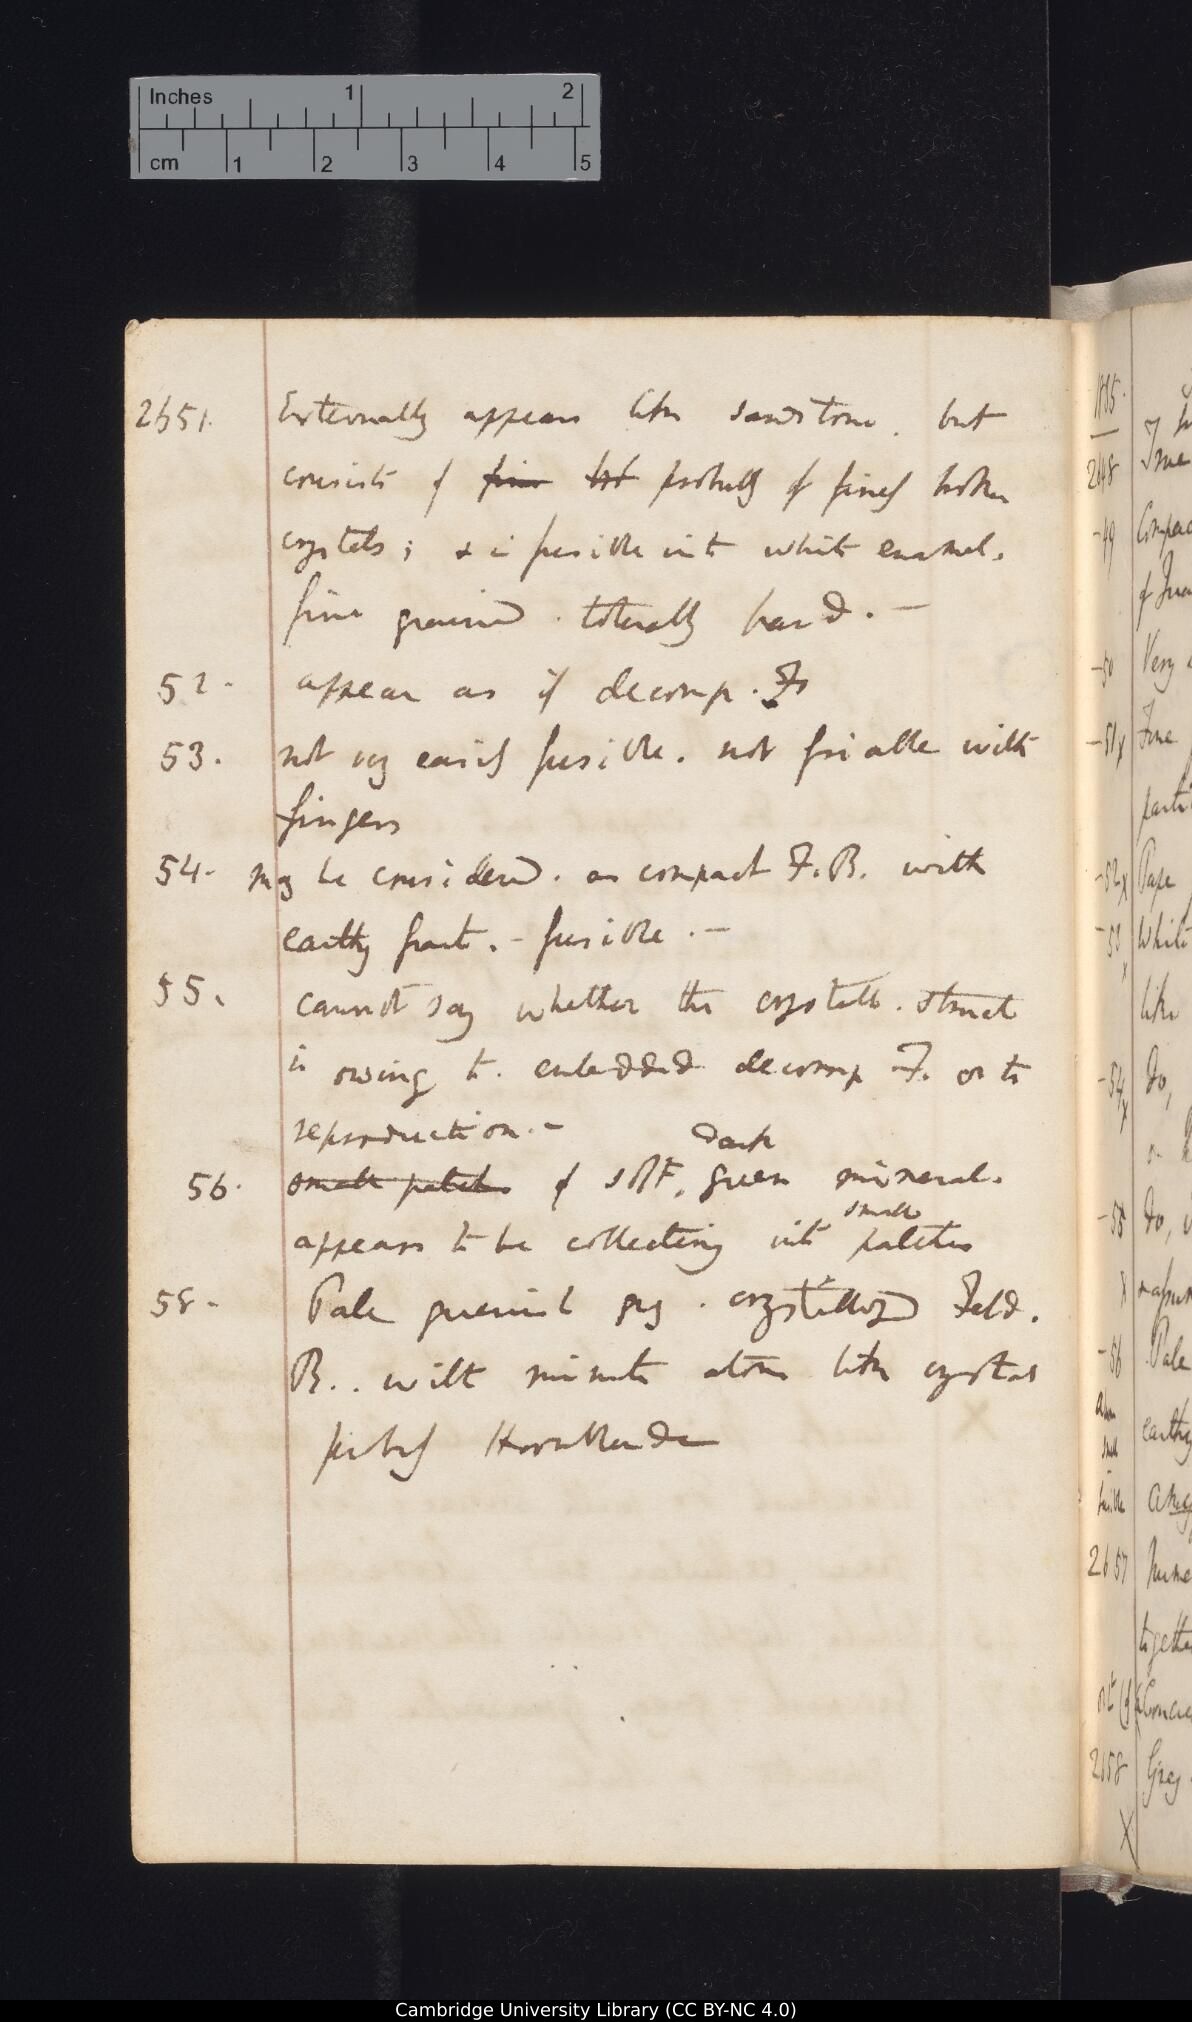 Inches 1 2
cm 1 2 3 4 5
2651. Externally appears like sandstone. but
consists of fine but probably of finely broken
crystals; & is fusible into white enamel.
fine grained. tolerably hard. —
52. appear as if decomp. Fs
53. not very easily fusible. not friable with
fingers
54. may be considered. as compact F.B. with
earthy fract. - fusible. —
55. cannot say whether the crystall. struct
is owing to. embedded decomp F. or to
reproduction. -
dark
56. small patches of soft, green mineral.
small
appears to be collecting into patches
58. Pale greenish grey. crystallized Feld.
B.. with minute atom like crystals
prob^ly Hornblende
1835.
2648
-49 Compac
-50 Very
-51x Fine
parti
-52x Pale
-53 x White
like
-54 x Do,
-55 Do,
x
-56 Pale
earthy
fusible
2657
togethe
2658 Grey
x
Cambridge University Library (CC BY-NC 4.0)